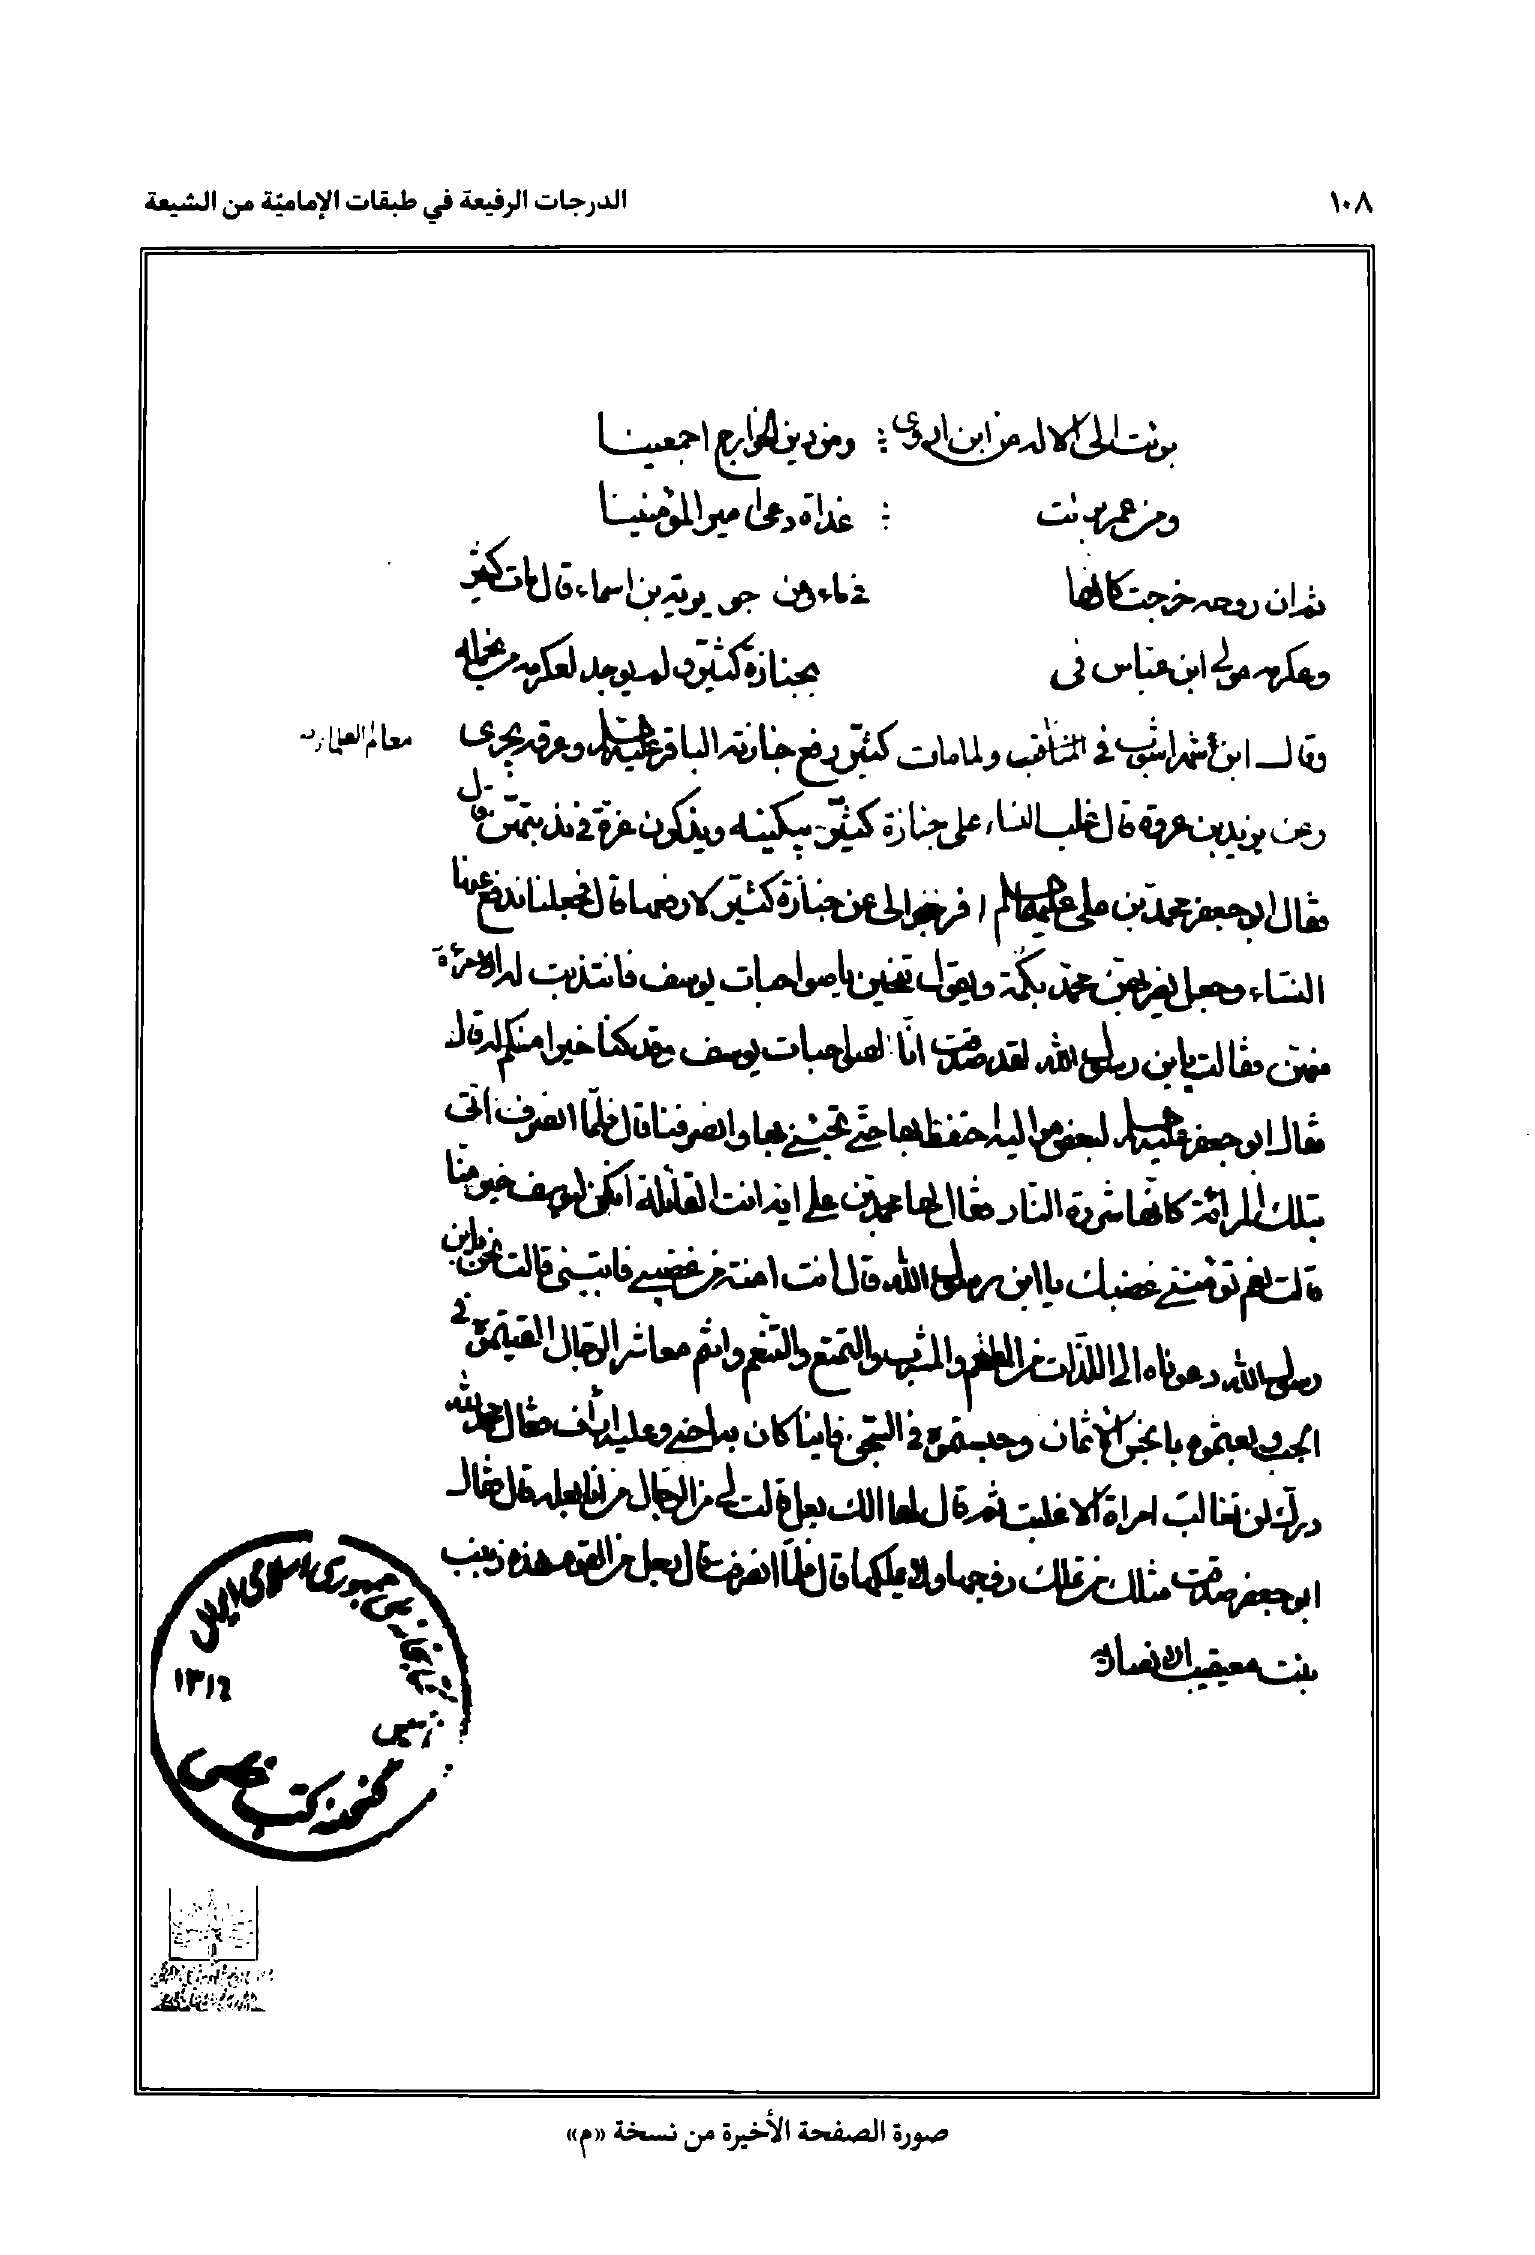 ١٠٨
الدرجات الرفيعة في طبقات الإماميّة من الشيعة
برئت الى الاله من ابن اروى ؞ ومن دين الخوارج اجمعينا
ومن عمر برئت ؞ غداة دعى امير المؤمنينا
ثم ان روحه خرجت كانها في ماء وعن جويرية بن اسماء قال مات كثير
وعكرمه مولى ابن عباس في بجنازة كثير ولم يوجد لعكرمه من يحمله
وقال ابن شهراشوب في المناقب ولما مات كثير رفع جنازته الباقر عليه السلام وعرقه يجرى
معالم العلماء
وعن يزيد بن عروة قال غلب النساء على جنازة كثير يبكينه ويذكرن عزة في ندبتهن قال
فقال ابو جعفر محمد بن على عليهما السلام افرجوا لى عن جنازة كثير لارفعها قال فجعلنا ندفع عنها
النساء وجعل يضربهن محمد بكمه ويقول تنحين يا صواحبات يوسف فانتدبت له امرأة
منهن فقالت يابن رسول الله لقد صدقت انا لصواحبات يوسف وقد كنا خيرا منكم له قال
فقال ابو جعفر عليه السلام لبعض مواليه احتفظ بها حتى تجيئني بها وانصرفنا قال فلما انصرف اتى
بتلك المرأة كانها شررة النار فقال لها محمد بن على ايه انت القائلة انكن ليوسف خير منا
قالت نعم تؤمننى غضبك يا ابن رسول الله قال انت امنة من غضبى فابينى قالت نحن يابن
رسول الله دعوناه الى اللذات من المطعم والمشرب والتمتع والتنعم وانتم معاشر الرجال القيتموه في
الجب وبعتموه بابخس الاثمان وحبستموه في السجن فاينا كان به احنى وعليه ارأف فقال محمد لله
درك لن تغالب امراة الا غلبت ثم قال لها الك بعل قالت لى من الرجال من انا بعله قال فقال
ابو جعفر صدقت مثلك من تملك زوجها ولا يملكها قال فلما انصرفت قال رجل من القوم هذه زينب
بنت معيقيب الانصارية
جمهورى اسلامى ايران
١٣١٤
صورة الصفحة الأخيرة من نسخة «م»